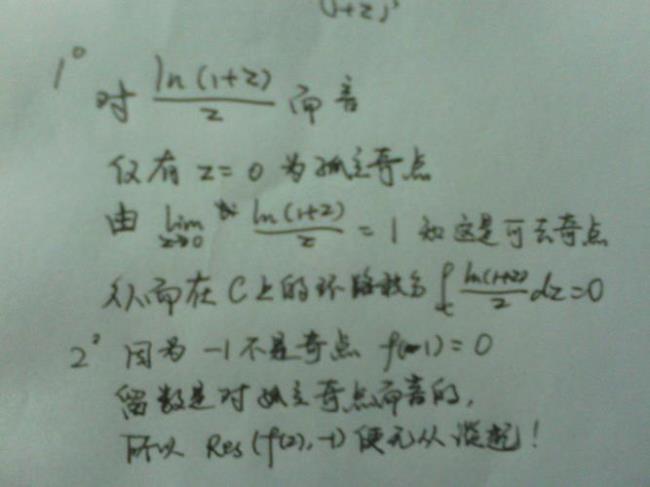 (1+z)²
1° 对 ln(1+z)/z 而言
仅有 z=0 为孤立奇点
由 lim z→0 ln(1+z)/z = 1 知这是可去奇点
从而在 C 上的环路积分 ∫c ln(1+z)/z dz=0
2° 因为 -1 不是奇点 f(-1)=0
留数是对孤立奇点而言的,
所以 Res(f(z),-1) 便无从谈起!